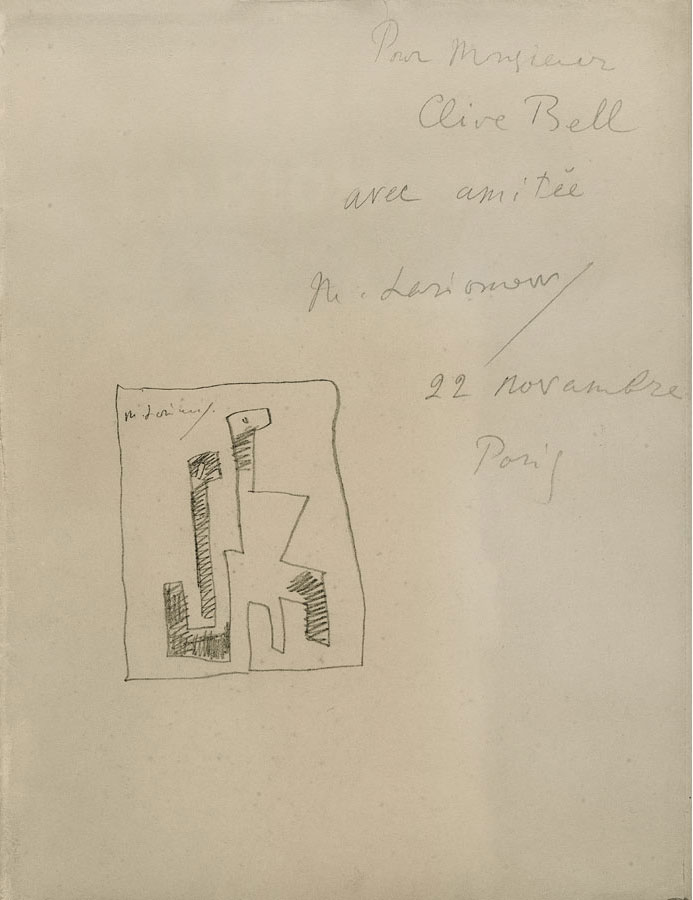 Pour Monsieur
Clive Bell
avec amitée
M. Larionow
22 novambre
Paris
M. Larionow